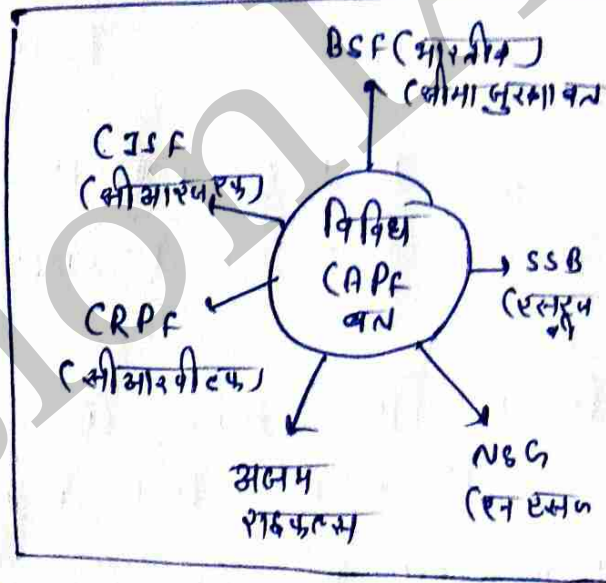 BSF (भारतीय)
(सीमा सुरक्षा बल
CISF
(सीआईएसएफ)
विविध
CAPF
बल
SSB
(एसएस
बी
CRPF
(सीआरपीएफ)
असम
राइफल्स
NSG
(एन एसज